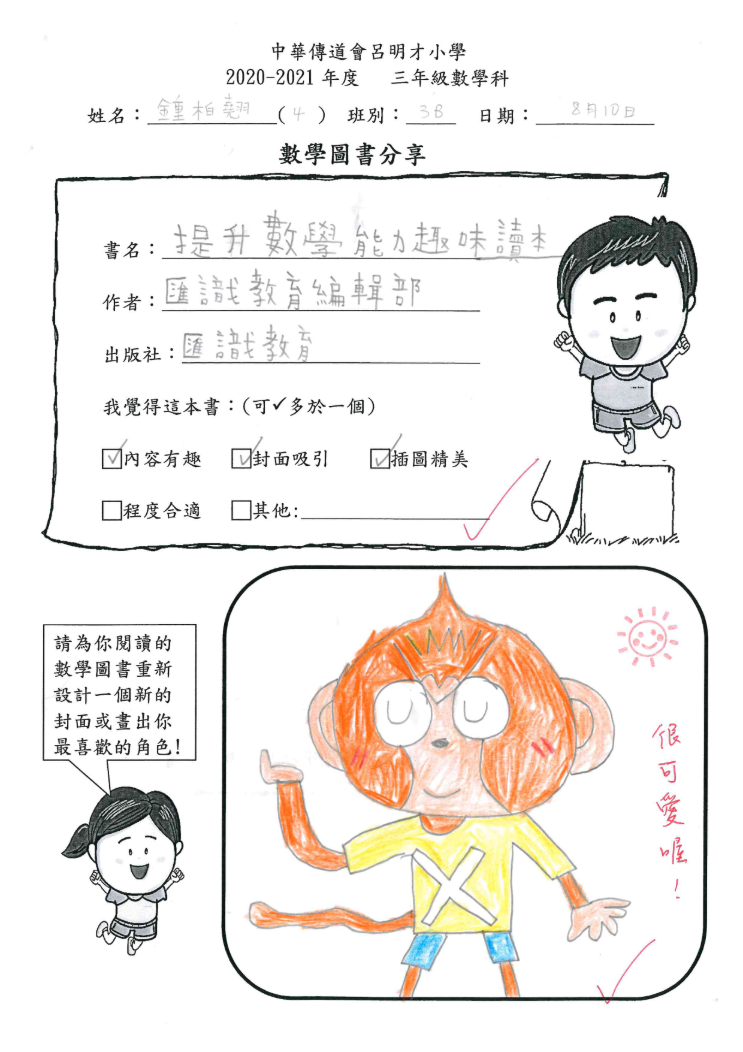 中華傳道會呂明才小學
2020-2021 年度 三年級數學科
姓名：鍾柏翹 (4) 班別：3B 日期：8月10日
數學圖書分享
書名：提升數學能力趣味讀本
作者：匯識教育編輯部
出版社：匯識教育
我覺得這本書：(可✓多於一個)
☑內容有趣 ☑封面吸引 ☑插圖精美
☐程度合適 ☐其他:
請為你閱讀的
數學圖書重新
設計一個新的
封面或畫出你
最喜歡的角色!
很可愛喔！